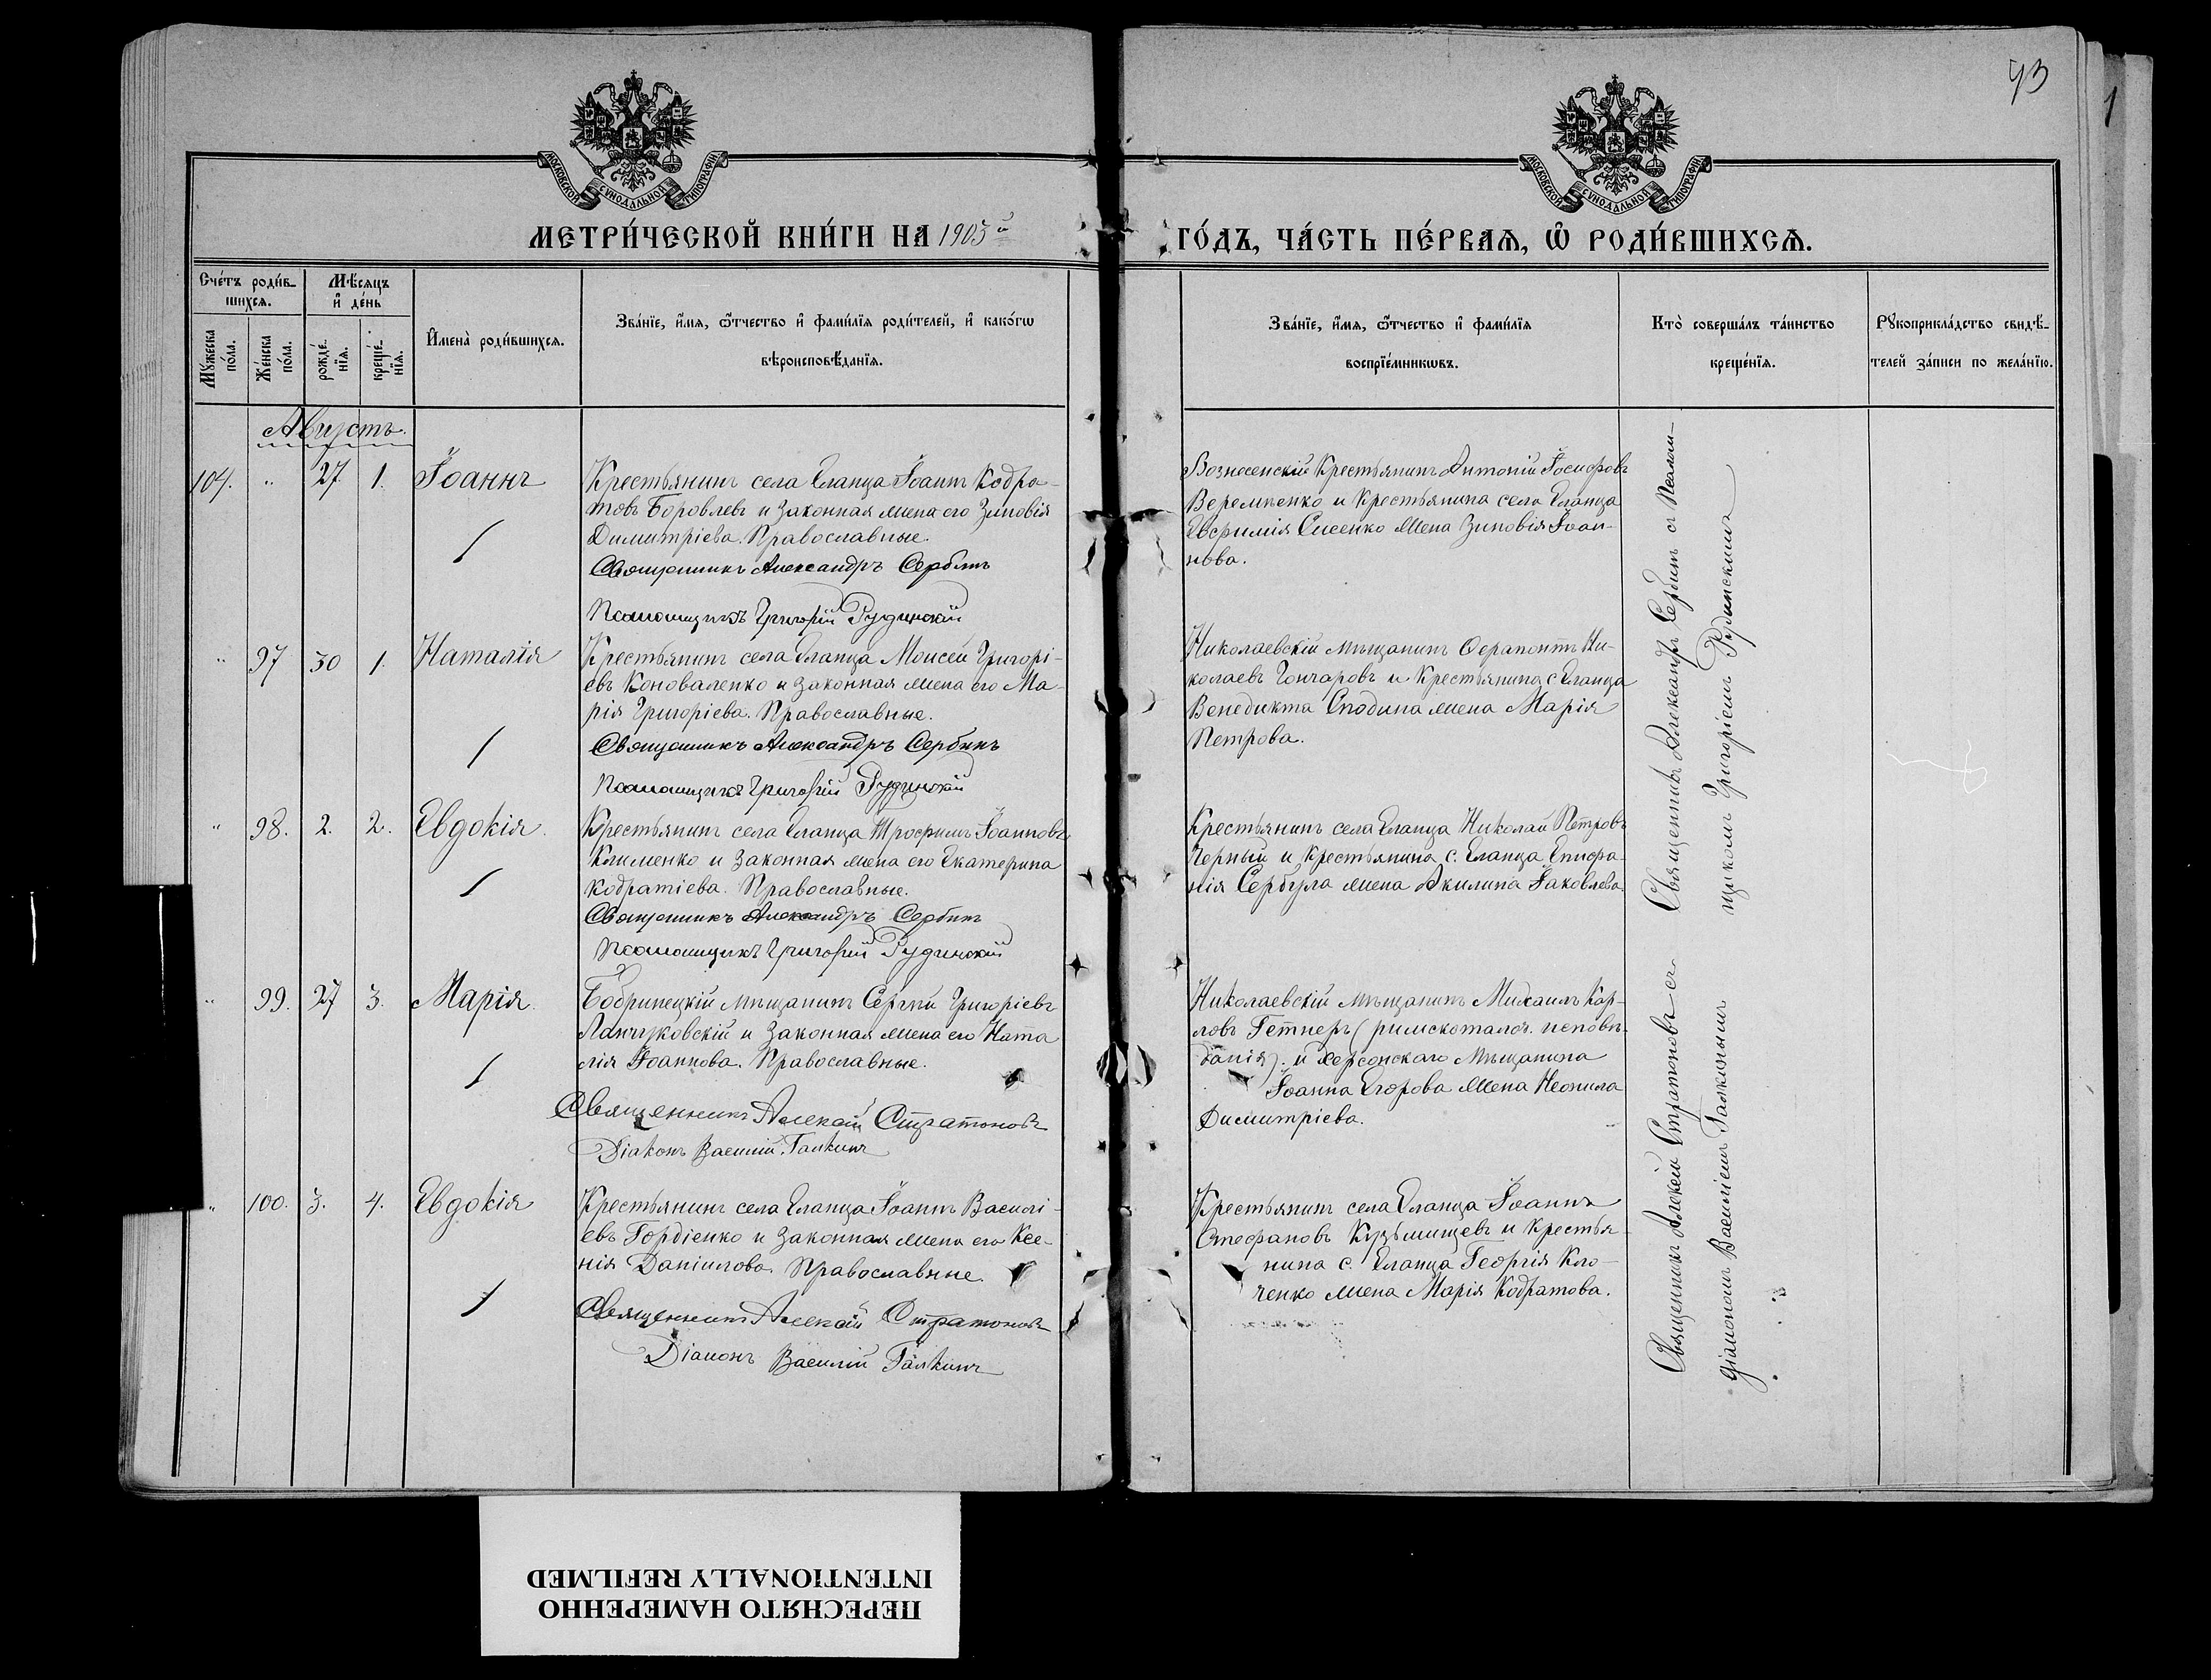 93
МОСКОВСКОЙ СѴНОДАЛЬНОЙ ТИПОГРАФІИ
МОСКОВСКОЙ СѴНОДАЛЬНОЙ ТИПОГРАФІИ
МЕТРИ́ЧЕСКОЙ КНИ́ГИ НА 1903й
ГО́ДЪ, ЧА́СТЬ ПЕ́РВАѦ, Ѽ РОДИ́ВШИХСѦ.
Сче́тъ роди́в-
шихсѧ.
Мѣ́сѧцъ
и҆ де́нь
Мꙋ́жеска
по́ла.
Же́нска
по́ла.
рожде́-
нїѧ.
креще́-
нїѧ.
И҆мена̀ роди́вшихсѧ.
Зва́нїе, и҆́мѧ, ѻ҆́тчество и҆ фами́лїѧ роди́телей, и҆ како́гѡ
вѣроисповѣ́данїѧ.
Зва́нїе, и҆́мѧ, ѻ҆́тчество и҆ фами́лїѧ
воспрїе́мникѡвъ.
Кто̀ соверша́лъ та́инство
креще́нїѧ.
Рꙋкоприкла́дство свидѣ́-
телей за́писи по жела́нїю.
Августъ.
104. " 27 1. Іоаннъ
Крестьянинъ села Еланца Іоаннъ Кодра-
товъ Боровлевъ и законная жена его Зиновія
Димитріева. Православные.
Священникъ Александръ Сербинъ
Псаломщикъ Григорій Рудинскій
Вознесенскій Крестьянинъ Антоній Іосифовъ
Веремѣенко и Крестьянина села Еланца
Евфимія Сисенко жена Зиновія Іоан-
нова.
" 97 30 1. Наталія
Крестьянинъ села Еланца Моисей Григорі-
евъ Коноваленко и законная жена его Ма-
рія Григоріева. Православные.
Священникъ Александръ Сербинъ
Псаломщикъ Григорій Рудинскій
Николаевскій мѣщанинъ Ферапонтъ Ни-
колаевъ Гончаровъ и Крестьянина с Еланца
Венедикта Сподина жена Марія
Петрова.
" 98. 2. 2. Евдокія.
Крестьянинъ села Еланца Трофимъ Іоанновъ
Клименко и законная жена его Екатерина
Кодратіева. Православные.
Священникъ Александръ Сербинъ
Псаломщикъ Григорій Рудинскій
Крестьянинъ села Еланца Николай Петровъ
Черный и Крестьянина с. Еланца Епифа-
нія Сербула жена Акилина Іаковлева.
Священникъ Александръ Сербинъ съ Псалом-
щикомъ Григоріемъ Рудинскимъ
" 99. 27 3. Марія.
Бобринецкій мѣщанинъ Сергѣй Григоріевъ
Ланчуковскій и законная жена его Ната
лія Іоаннова. Православные.
Священникъ Алексій Стратоновъ
Діаконъ Василій Галкинъ
Николаевскій мѣщанинъ Михаилъ Кар-
ловъ Гетнеръ (римскокатол. исповѣ-
данія). и Херсонскаго Мѣщанина
Іоанна Егорова жена Неонила
Димитріева.
" 100. 3. 4. Евдокія
Крестьянинъ села Еланца Іоаннъ Василі-
евъ Гордіенко и законная жена его Ксе-
нія Даніилова. Православные
Священникъ Алексій Стратоновъ
Діаконъ Василій Галкинъ
Крестьянинъ села Еланца Іоаннъ
Стефановъ Кузьмищевъ и Крестья-
нина с. Еланца Георгія Кло-
ченко жена Марія Кодратова.
Священникъ Алексій Стратоновъ съ
діакономъ Василіемъ Галкинымъ
ПЕРЕСНЯТО НАМЕРЕННО
INTENTIONALLY REFILMED